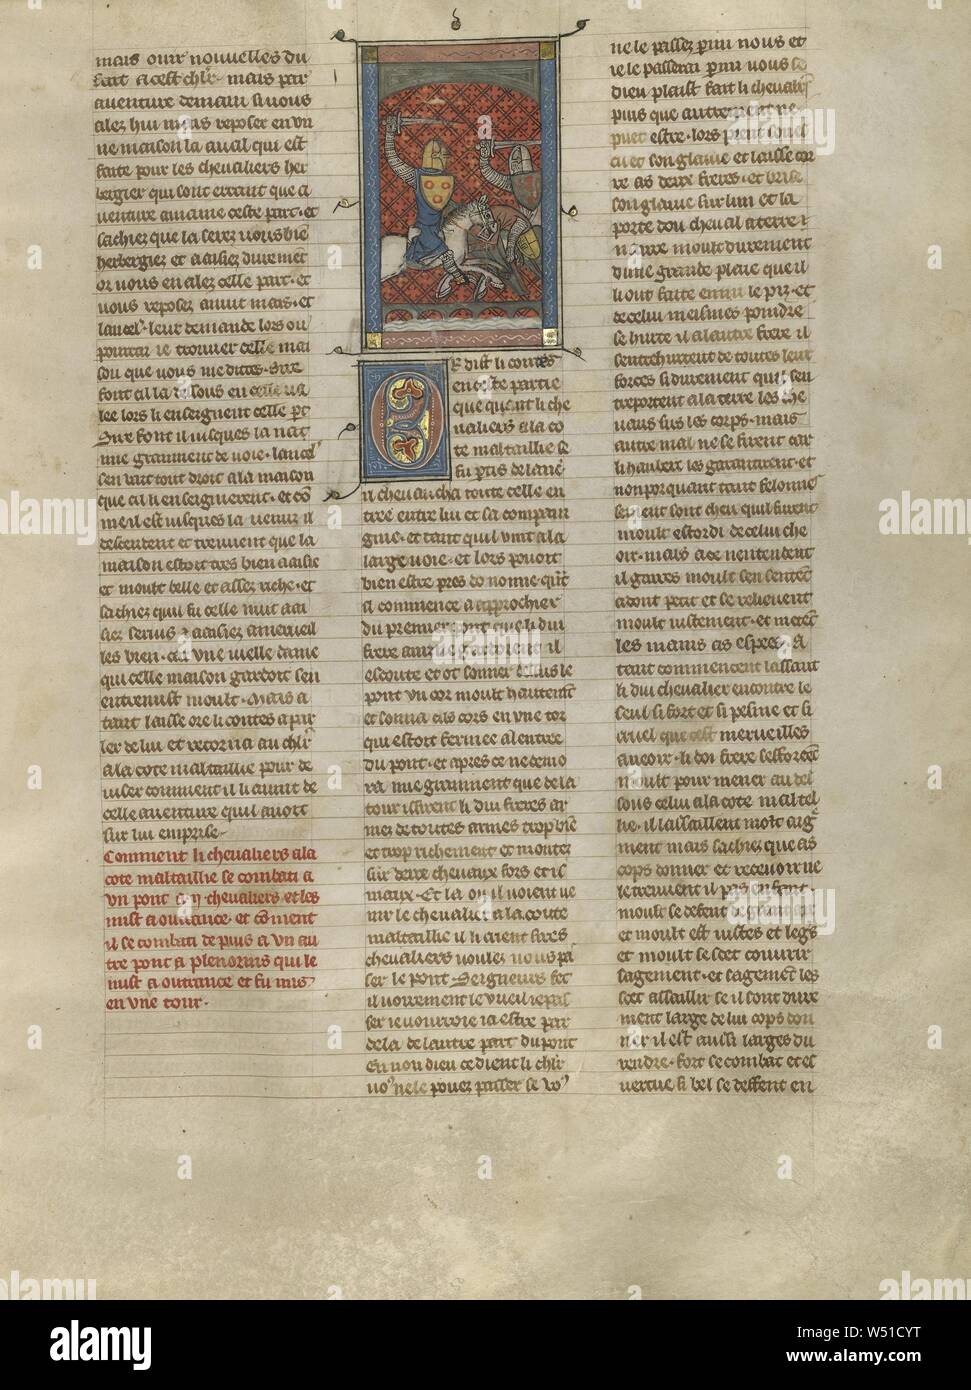 mais ouir nouuelles du
fait a cest chlr mais par
auenture demain si uous
alez hui mais reposer en vn
ne maison la aual qui est
faite pour les cheualiers her
bergier qui sont errant que a
uenture amaine ceste part et
sachiez que la serez uous bie
herbergiez et aaisiez duremēt
or uous en alez celle part et
uous reposez anuit mais et
lancel leur demande lors ou
pourrai ie trouuer celle mai
son que uous me dites Sire
font il la dessous en celle ua
lee lors li enseignent celle pt
Sire font il iusques la na
mie granment de uoie lancel
sen uait tout droit a la maison
que cil li enseignierent et cō
me il est iusques la uenu il
descendent et treuuent que la
maison estoit tres bien aaisie
et moult belle et assez riche et
sachiez quil fu celle nuit aai
siez seruis et aaisiez a merueil
les bien car vne uielle dame
qui celle maison gardoit sen
entremist moult Mais a
tant laisse ore li contes a par
ler de lui et retorna au chlr
a la cote maltaillie pour de
uiser comment il li auint de
celle auenture quil auoit
sur lui emprise
Comment li cheualiers a la
cote maltaillie se combati a
vn pont a ij cheualiers et les
mist a outrance et cōment
il se combati de puis a vn au
tre pont a plenorius qui le
mist a outrance et fu mis
en vne tour
Or dist li contes
en ceste partie
que quant li che
ualiers a la co
te maltaillie se
fu ptis de lanc
il cheuaucha toute celle en
tree entre lui et sa compain
gnie et tant quil vint a la
large uoie et lors pouoit
bien estre pres do nonne qt
il commence a approchier
du premier pont que li dui
frere gardoient il
escoute et ot sonner dessus le
pont vn cor moult hautemēt
et sonna cils cors en vne tor
qui estoit fermee a lentree
du pont et apres ce ne demo
ra mie granment que de la
tour issirent li dui freres ar
mez de toutes armes trop biē
et trop richement et montez
sur deux cheuaux fors et is
niaux Et la ou il uoient ue
nir le cheualier a la coute
maltaillie il li crient sires
cheualiers uoulez uous pa
ser le pont Seigneurs fet
il uoirement le vueil ie pas
ser ie uourroie ia estre par
de la de lautre part du pont
En nou dieu ce dient li chlr
uo9 ne le pouez passer se uo9
ne le passez parmi nous et
ie le passerai parmi uous se
dieu plaist fait li cheualiers
puis que autrement ne
puet estre lors prent son es
cu et son glaiue et laisse cor
re as deux freres et brise
son glaiue sur lun et la
porte dou cheual a terre
naure moult durement
dune grande plaie que il
li out faite enmi le piz et
de celui meismes poindre
se hurte il a lautre frere il
sentrehurtent de toutes leur
forces si durement quil sen
treportent a la terre les che
uaus sus les corps mais
autre mal ne se firent car
li haubers les garantirent et
nonporquant tant felonne
sement sont cheu quil furent
moult estordi de celui che
oir mais a ce nentendent
il gaires moult sen sentent
adont petit et se relieuent
moult uistement et metent
les mains as espees a
tant commencent lassaut
li dui cheualier encontre le
seul si fort et si pesme et si
cruel que cest merueilles
a ueoir li doi frere sefforcent
moult pour mener au des
sous celui a la cote maltel
lie il lassaillent molt aigre
ment mais sachiez que as
cops donner et receuoir ne
le treuuent il pas enfant
moult se deffent
et moult est uistes et legs
et moult se scet couurir
sagement et sagement les
scet assaillir se il sont dure
ment large de lui cops don
ner il est aussi larges du
rendre fort se combat et es
uertue si bel se deffent en
alamy
alamy
Image ID: W51CYT
www.alamy.com